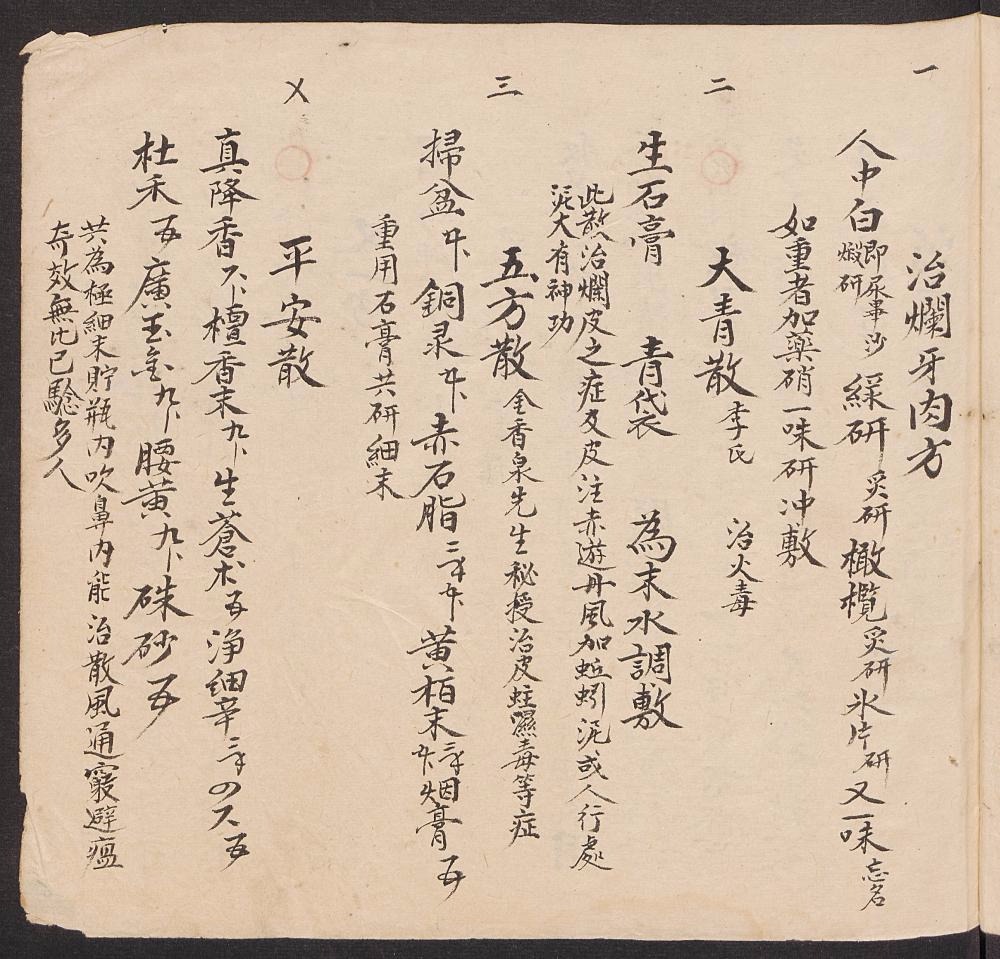 一
治爛牙肉方
人中白 即尿事沙煅研 綵研 炙研 橄欖 炙研 氷片 研 又一味 忘名
如重者加藥硝一味研冲敷
二
大青散 李氏 治火毒
生石膏 青袋 為末水調敷
此散治爛皮之症及皮注赤遊丹風加蚯蚓泥或人行處
泥大有神功
三
五方散 金香泉先生秘授治皮蛀濕毒等症
掃盆 銅录 赤石脂 黄柏末 烟膏
重用石膏共研細末
〤
平安散
真降香 檀香末 生蒼朮 浄細辛
杜禾 廣玉金 腰黄 硃砂
共為極細末貯瓶内吹鼻内能治散風通竅避瘟
奇效無比已騐多人